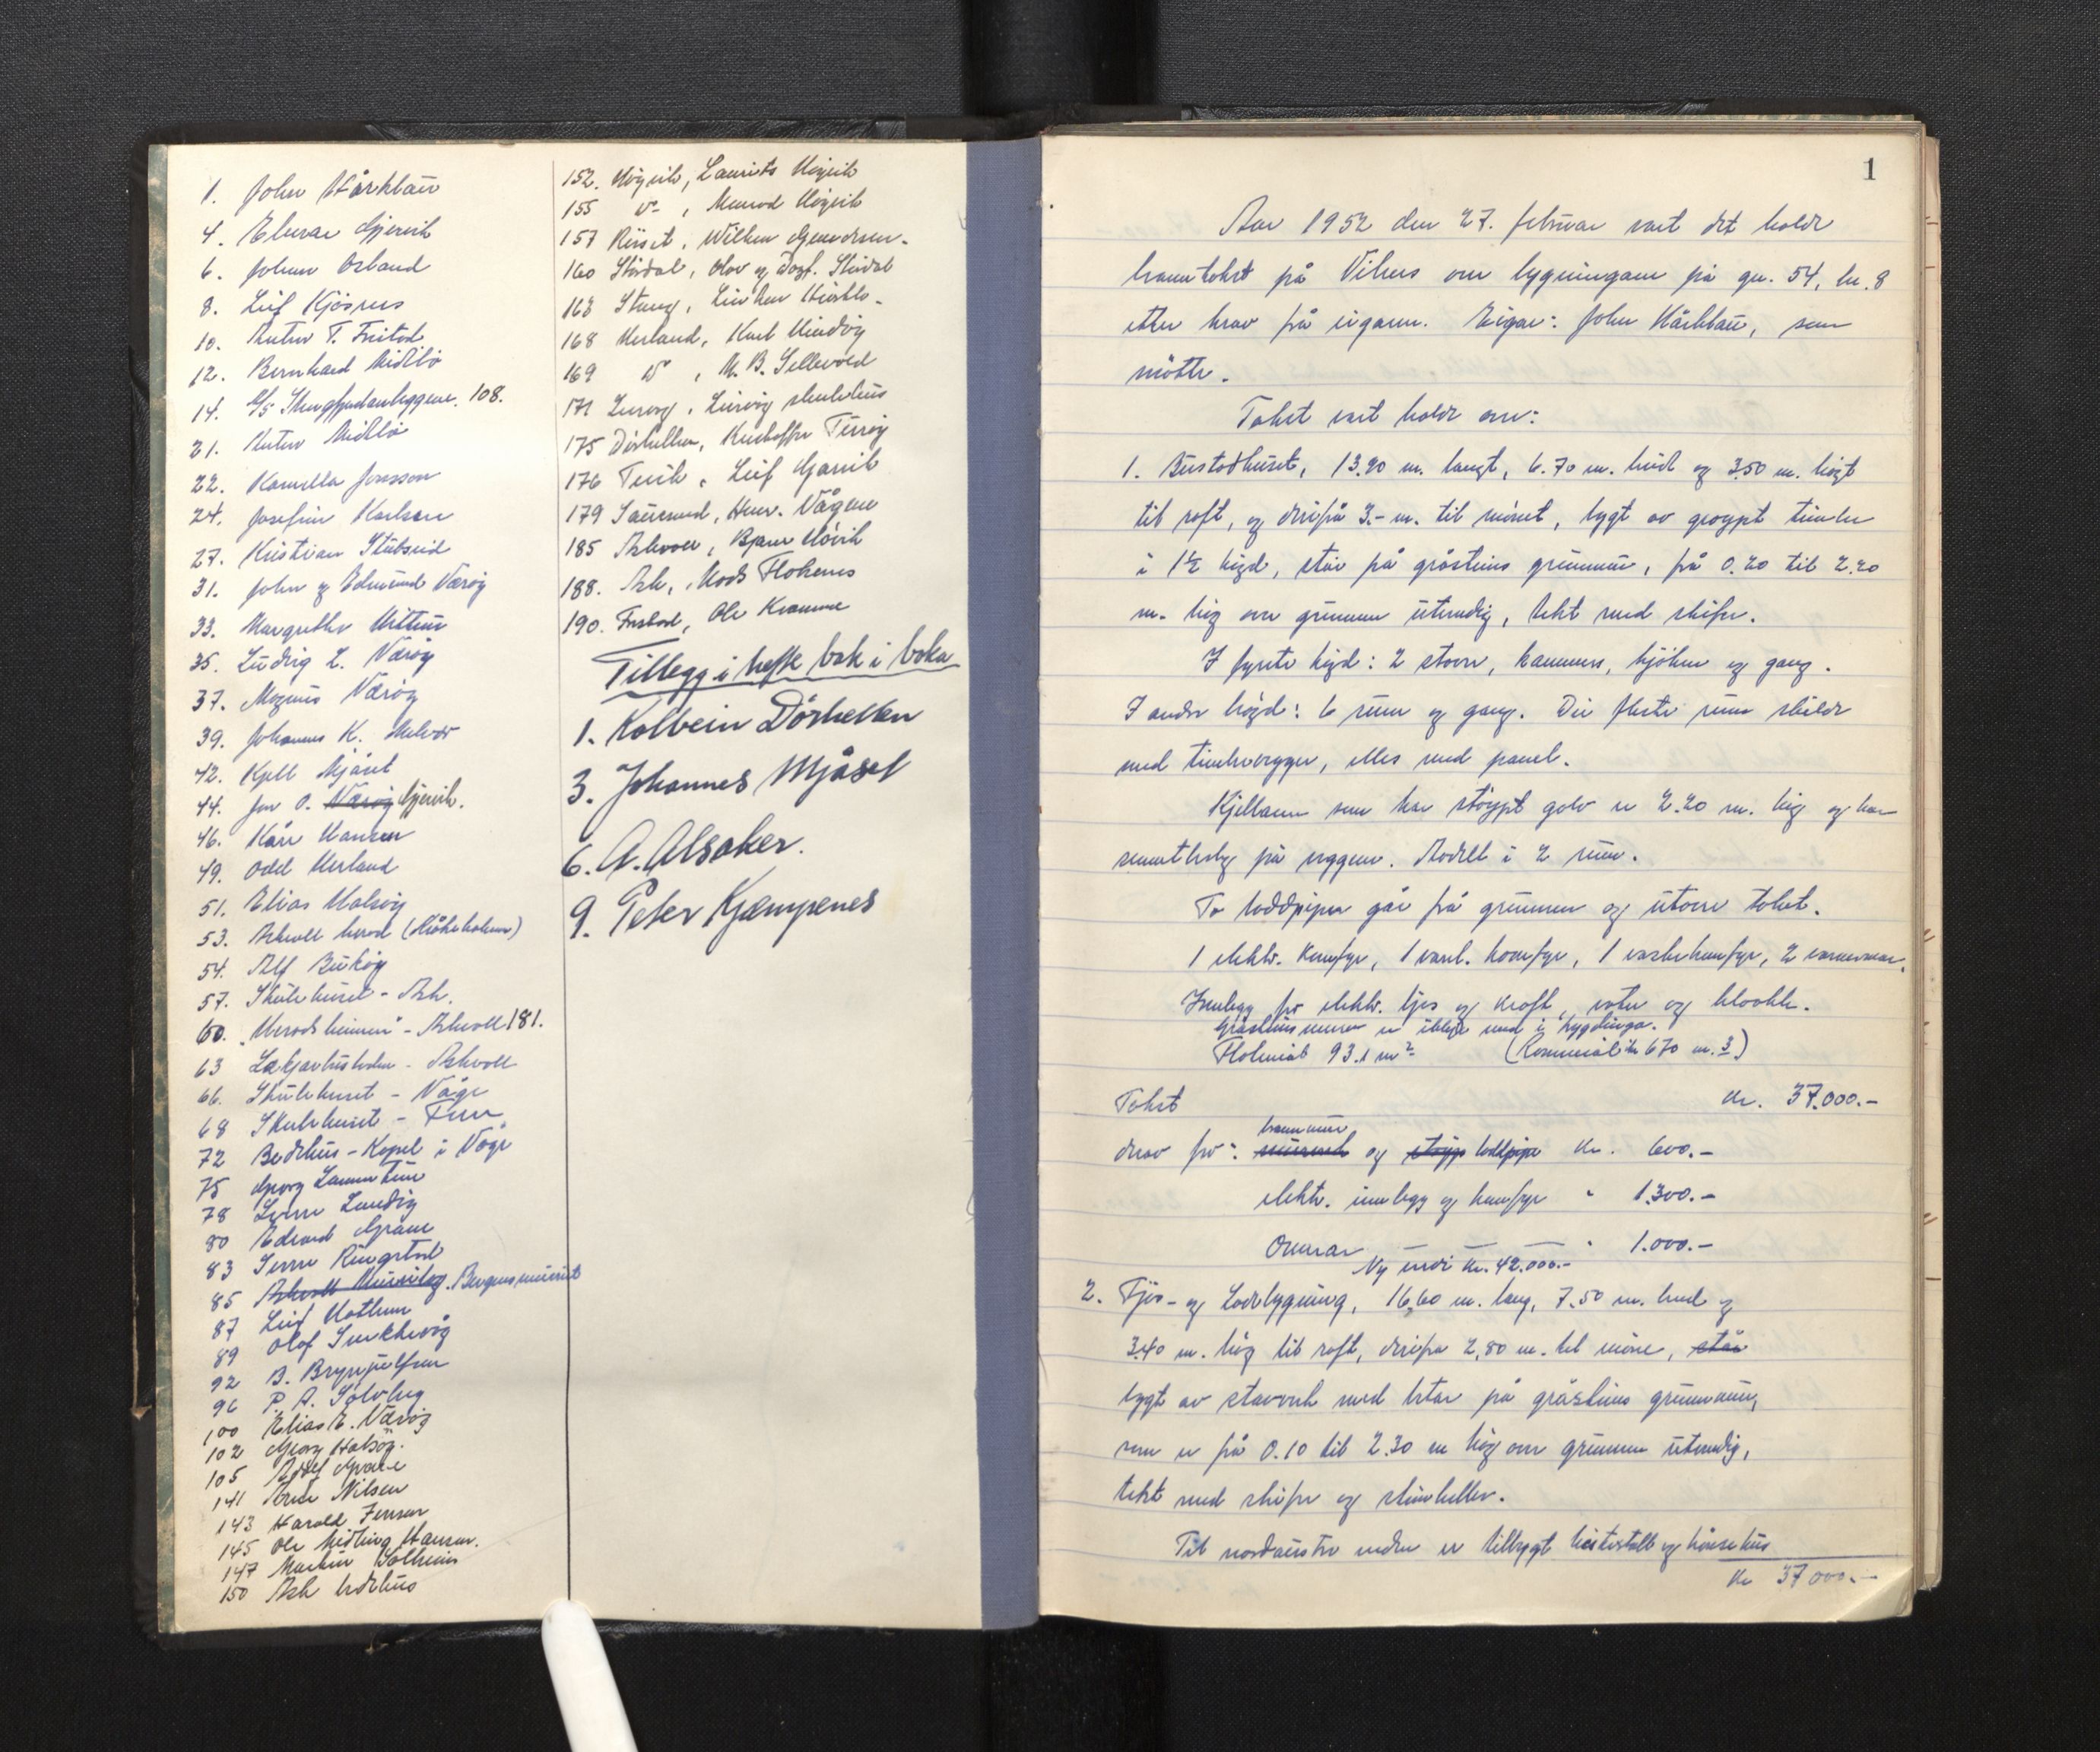 1. John Hårklau
4. Elvrar Gjervik
6. Johan Osland
8. Leif Kjösnes
10. Anton T. Fristad
12. Bernhard Midtbö
14. A/S Skogfjordanleggene. 108.
21. Anton Midtbö
22. Kamilla Jonsson
24. Josefine Karlsen
27. Kristian Stubseid
31. John og Edmund Værøy
33. Margrethe
35. Ludvig L. Værøy
37. Magnus Værøy
39. Johannes K.
42. Kjell Mjåset
44. Jon O. Værøy Gjervik.
46. Kåre Hansen
49. Odd Herland
51. Elias Halsøy
53. Askvoll herad
54. Alf Buköy
57. Skulehuset - Ask.
60. "Heradsheimen" - Askvoll 181.
63 Lækjarbustaden - Askvoll
66. Skulehuset - Våge
68 Skulehuset - Fure
72 Bedehus-Kapel i Våge
75 Georg
78 Sverre Lundöy
80 Edvard Grane
83 Sverre Ringstad
85 Askvoll Museilag. Bergens museet
87 Leif
89 Olaf
92 B. Brynjulfsen
96 P. A. Solvberg
100 Elias E. Værøy
102 Georg Halsøy.
105 Adolf Grane
141 Arne Nilsen
143 Harald Jensen
145 Ole Hansen.
147 Martin Solheim
150 Ask bedehus
152. Høyvik, Laurits Høyvik
155 " , Høyvik
157 Rivset, Wilhem Gundersen.
160 Stördal, Olav og Dagf. Stördal
163 Stang,
168 Herland, Karl Hindöy
169 " , M. B. Sellevold
171 Lurøy, Lurøy skulehus
175 Dörhellen, Kristoffer
176 , Leif Gjervik
179 , Henr. Vågene
185 Askvoll, Bjarne Hövik
188. Ask, Mads Flokenes
190. Fristad, Ole Kramme
Tillegg i hefte bak i boka
1. Kolbein Dörhellen
3. Johannes Mjåset
6. A. Alsaker.
9. Peter Kjempenes
1
Aar 1952 den 27. februar vart det holdt
branntakst på Vilnes over bygningane på gn. 54, bn. 8
etter krav frå eigaren. Eigar: John Hårklau, som
mötte.
Takst vart holdt over:
1. Bustadhuset, 13.90 m. langt, 6.70 m. breidt og 3.50 m. högt
til raft, og derifrå 3.- m. til mönet, bygt av groypt timber
i 1½ högd, står på gråsteins grunnmur, frå 0.20 til 2.20
m. høg over grunnen utvendig, tekt med skifer.
I fyrste högd: 2 stover, kammers, kjöken og gang.
I andre högd: 6 rum og gang. Dei fleste rum skilde
med timbervegger, elles med panel.
Kjellaren som har stöypt golv er 2.20 m. høg og har
sementbelegg på veggene. Avdelt i 2 rum.
To loddpiper går frå grunnen og utover taket.
1 elektr. komfyr, 1 vanl. komfyr, 1 vaskekomfyr, 2 varmeovnar.
Innlegg for elektr. ljos og kraft, vatn og kloakk.
Gråsteinsmuren er ikkje med i bygdinga.
Flatemål 93.1 m² (Rommål ik 670 m.3)
Takst Kr. 37.000.-
brannmur
Derav for: og loddpipe Kr. 600.-
elektr. innlegg og komfyr " 1.300.-
Ovnar " 1.000.-
Ny verdi kr. 42.000.-
2. Fjös- og Lödebygning, 16,60 m. lang, 7.50 m. breid og
3.40 m. høg til raft, derifra 2,80 m. til möne, står
bygt av stavverk med betar på gråsteins grunnmur,
som er frå 0.10 til 2.30 m høg over grunnen utvendig,
tekt med skifer og steinheller.
Til nordaustre enden er tilbygt hestestall og hönsehus
Kr 37000.-